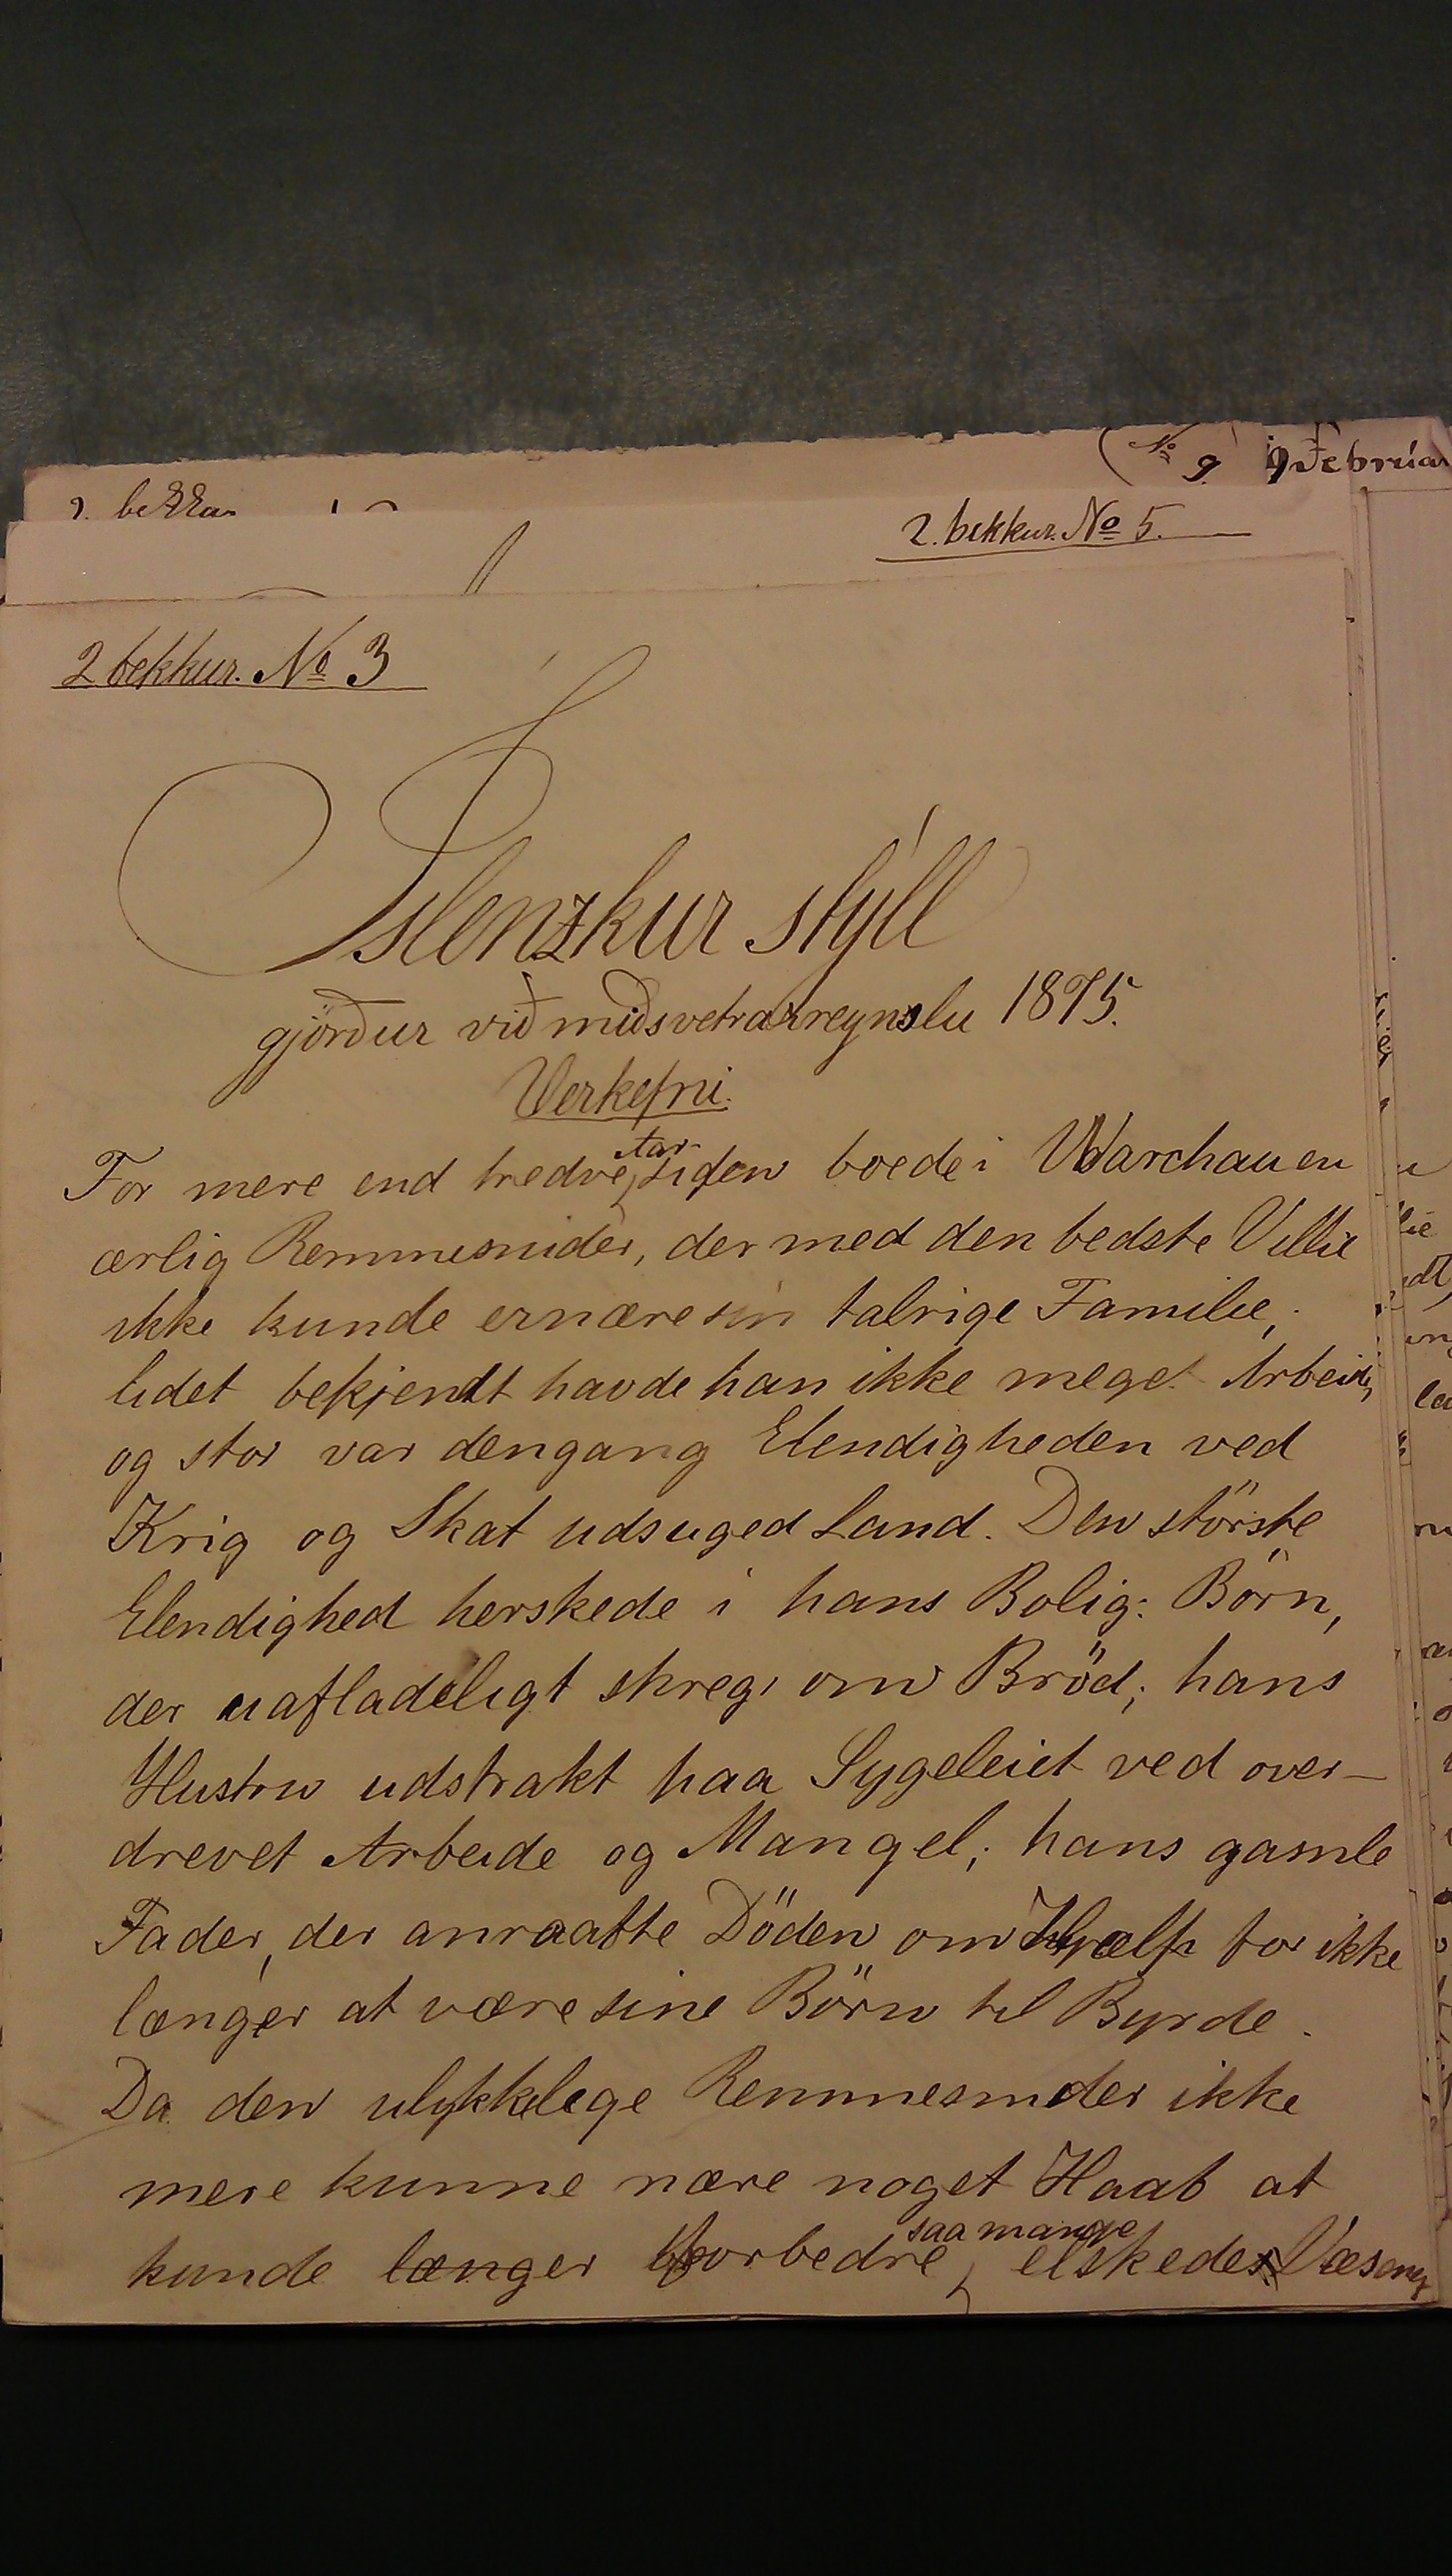 No 9. 9 Februar
2. bekkur
2. bekkur. No 5.
2 bekkur. No 3
Islenzkur stýll
gjörður við miðsvetrarreynslu 1875.
Verkefni.
For mere end tredve Aar siden boede i Warchau en
ærlig Remmesnider, der med den bedste Villie
ikke kunde ernære sin talrige Familie,
lidet bekjendt havde han ikke meget Arbeide,
og stor var dengang Elendigheden ved
Krig og Skat udsuged Land. Den störste
Elendighed herskede i hans Bolig: Börn,
der uafladeligt skreg om Bröd; hans
Hustru udstrakt paa Sygeleiet ved over-
drevet Arbeide og Mangel; hans gamle
Fader, der anraabte Döden om Hjælp for ikke
længer at være sine Börn til Byrde.
Da den ulykkelige Remmesnider ikke
mere kunne nære noget Haab at
kunde længer forbedre saa mange elskede Væsner